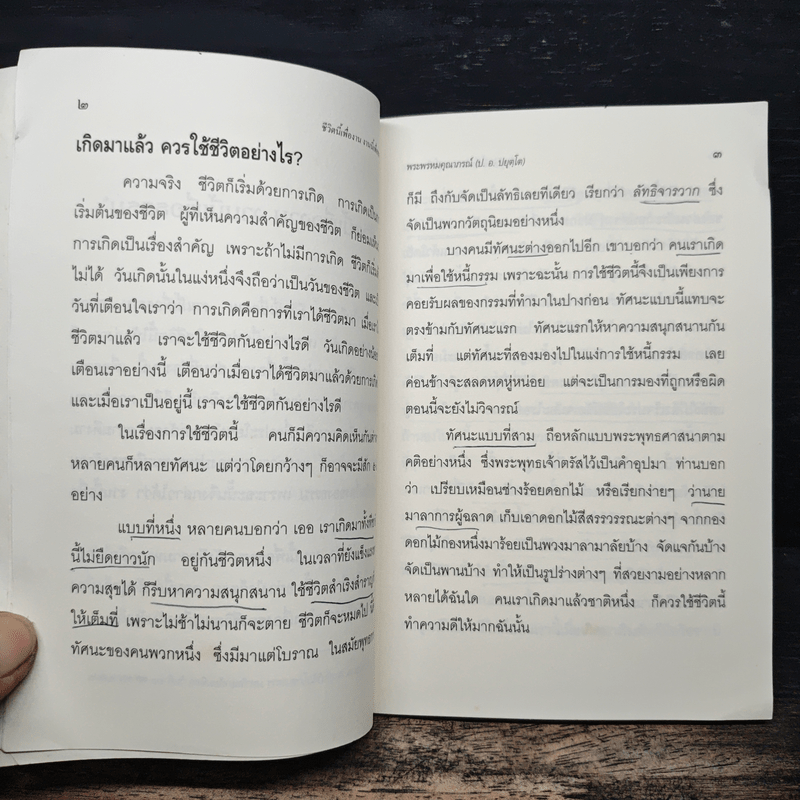 ๒
ชีวิตนี้เพื่องาน
เกิดมาแล้ว ควรใช้ชีวิตอย่างไร?
ความจริง ชีวิตก็เริ่มด้วยการเกิด การเกิดเป็น
เริ่มต้นของชีวิต ผู้ที่เห็นความสำคัญของชีวิต ก็ย่อม
การเกิดเป็นเรื่องสำคัญ เพราะถ้าไม่มีการเกิด ชีวิตก็
ไม่ได้ วันเกิดนั้นในแง่หนึ่งจึงถือว่าเป็นวันของชีวิต และ
วันที่เตือนใจเราว่า การเกิดคือการที่เราได้ชีวิตมา เมื่อ
ชีวิตมาแล้ว เราจะใช้ชีวิตกันอย่างไรดี วันเกิดอย่าง
เตือนเราอย่างนี้ เตือนว่าเมื่อเราได้ชีวิตมาแล้วด้วยการ
และเมื่อเราเป็นอยู่นี้ เราจะใช้ชีวิตกันอย่างไรดี
ในเรื่องการใช้ชีวิตนี้ คนก็มีความคิดเห็นกัน
หลายคนก็หลายทัศนะ แต่ว่าโดยกว้างๆ ก็อาจจะมีสัก
อย่าง
แบบที่หนึ่ง หลายคนบอกว่า เออ เราเกิดมาทั้งที
นี้ไม่ยืดยาวนัก อยู่กันชีวิตหนึ่ง ในเวลาที่ยังแข็งแรง
ความสุขได้ ก็รีบหาความสนุกสนาน ใช้ชีวิตสำเริงสำราญ
ให้เต็มที่ เพราะไม่ช้าไม่นานก็จะตาย ชีวิตก็จะหมดไป
ทัศนะของคนพวกหนึ่ง ซึ่งมีมาแต่โบราณ ในสมัย
พระพรหมคุณาภรณ์ (ป. อ. ปยุตฺโต)
๓
ก็มี ถึงกับจัดเป็นลัทธิเลยทีเดียว เรียกว่า ลัทธิจารวาก ซึ่ง
จัดเป็นพวกวัตถุนิยมอย่างหนึ่ง
บางคนมีทัศนะต่างออกไปอีก เขาบอกว่า คนเราเกิด
มาเพื่อใช้หนี้กรรม เพราะฉะนั้น การใช้ชีวิตนี้จึงเป็นเพียงการ
คอยรับผลของกรรมที่ทำมาในปางก่อน ทัศนะแบบนี้แทบจะ
ตรงข้ามกับทัศนะแรก ทัศนะแรกให้หาความสนุกสนานกัน
เต็มที่ แต่ทัศนะที่สองมองไปในแง่การใช้หนี้กรรม เลย
ค่อนข้างจะสลดหดหู่หน่อย แต่จะเป็นการมองที่ถูกหรือผิด
ตอนนี้จะยังไม่วิจารณ์
ทัศนะแบบที่สาม ถือหลักแบบพระพุทธศาสนาตาม
คติอย่างหนึ่ง ซึ่งพระพุทธเจ้าตรัสไว้เป็นคำอุปมา ท่านบอก
ว่า เปรียบเหมือนช่างร้อยดอกไม้ หรือเรียกง่ายๆ ว่านาย
มาลาการผู้ฉลาด เก็บเอาดอกไม้สีสรรวรรณะต่างๆ จากกอง
ดอกไม้กองหนึ่งมาร้อยเป็นพวงมาลามาลัยบ้าง จัดแจกันบ้าง
จัดเป็นพานบ้าง ทำให้เป็นรูปร่างต่างๆ ที่สวยงามอย่างหลาก
หลายได้ฉันใด คนเราเกิดมาแล้วชาติหนึ่ง ก็ควรใช้ชีวิตนี้
ทำความดีให้มากฉันนั้น